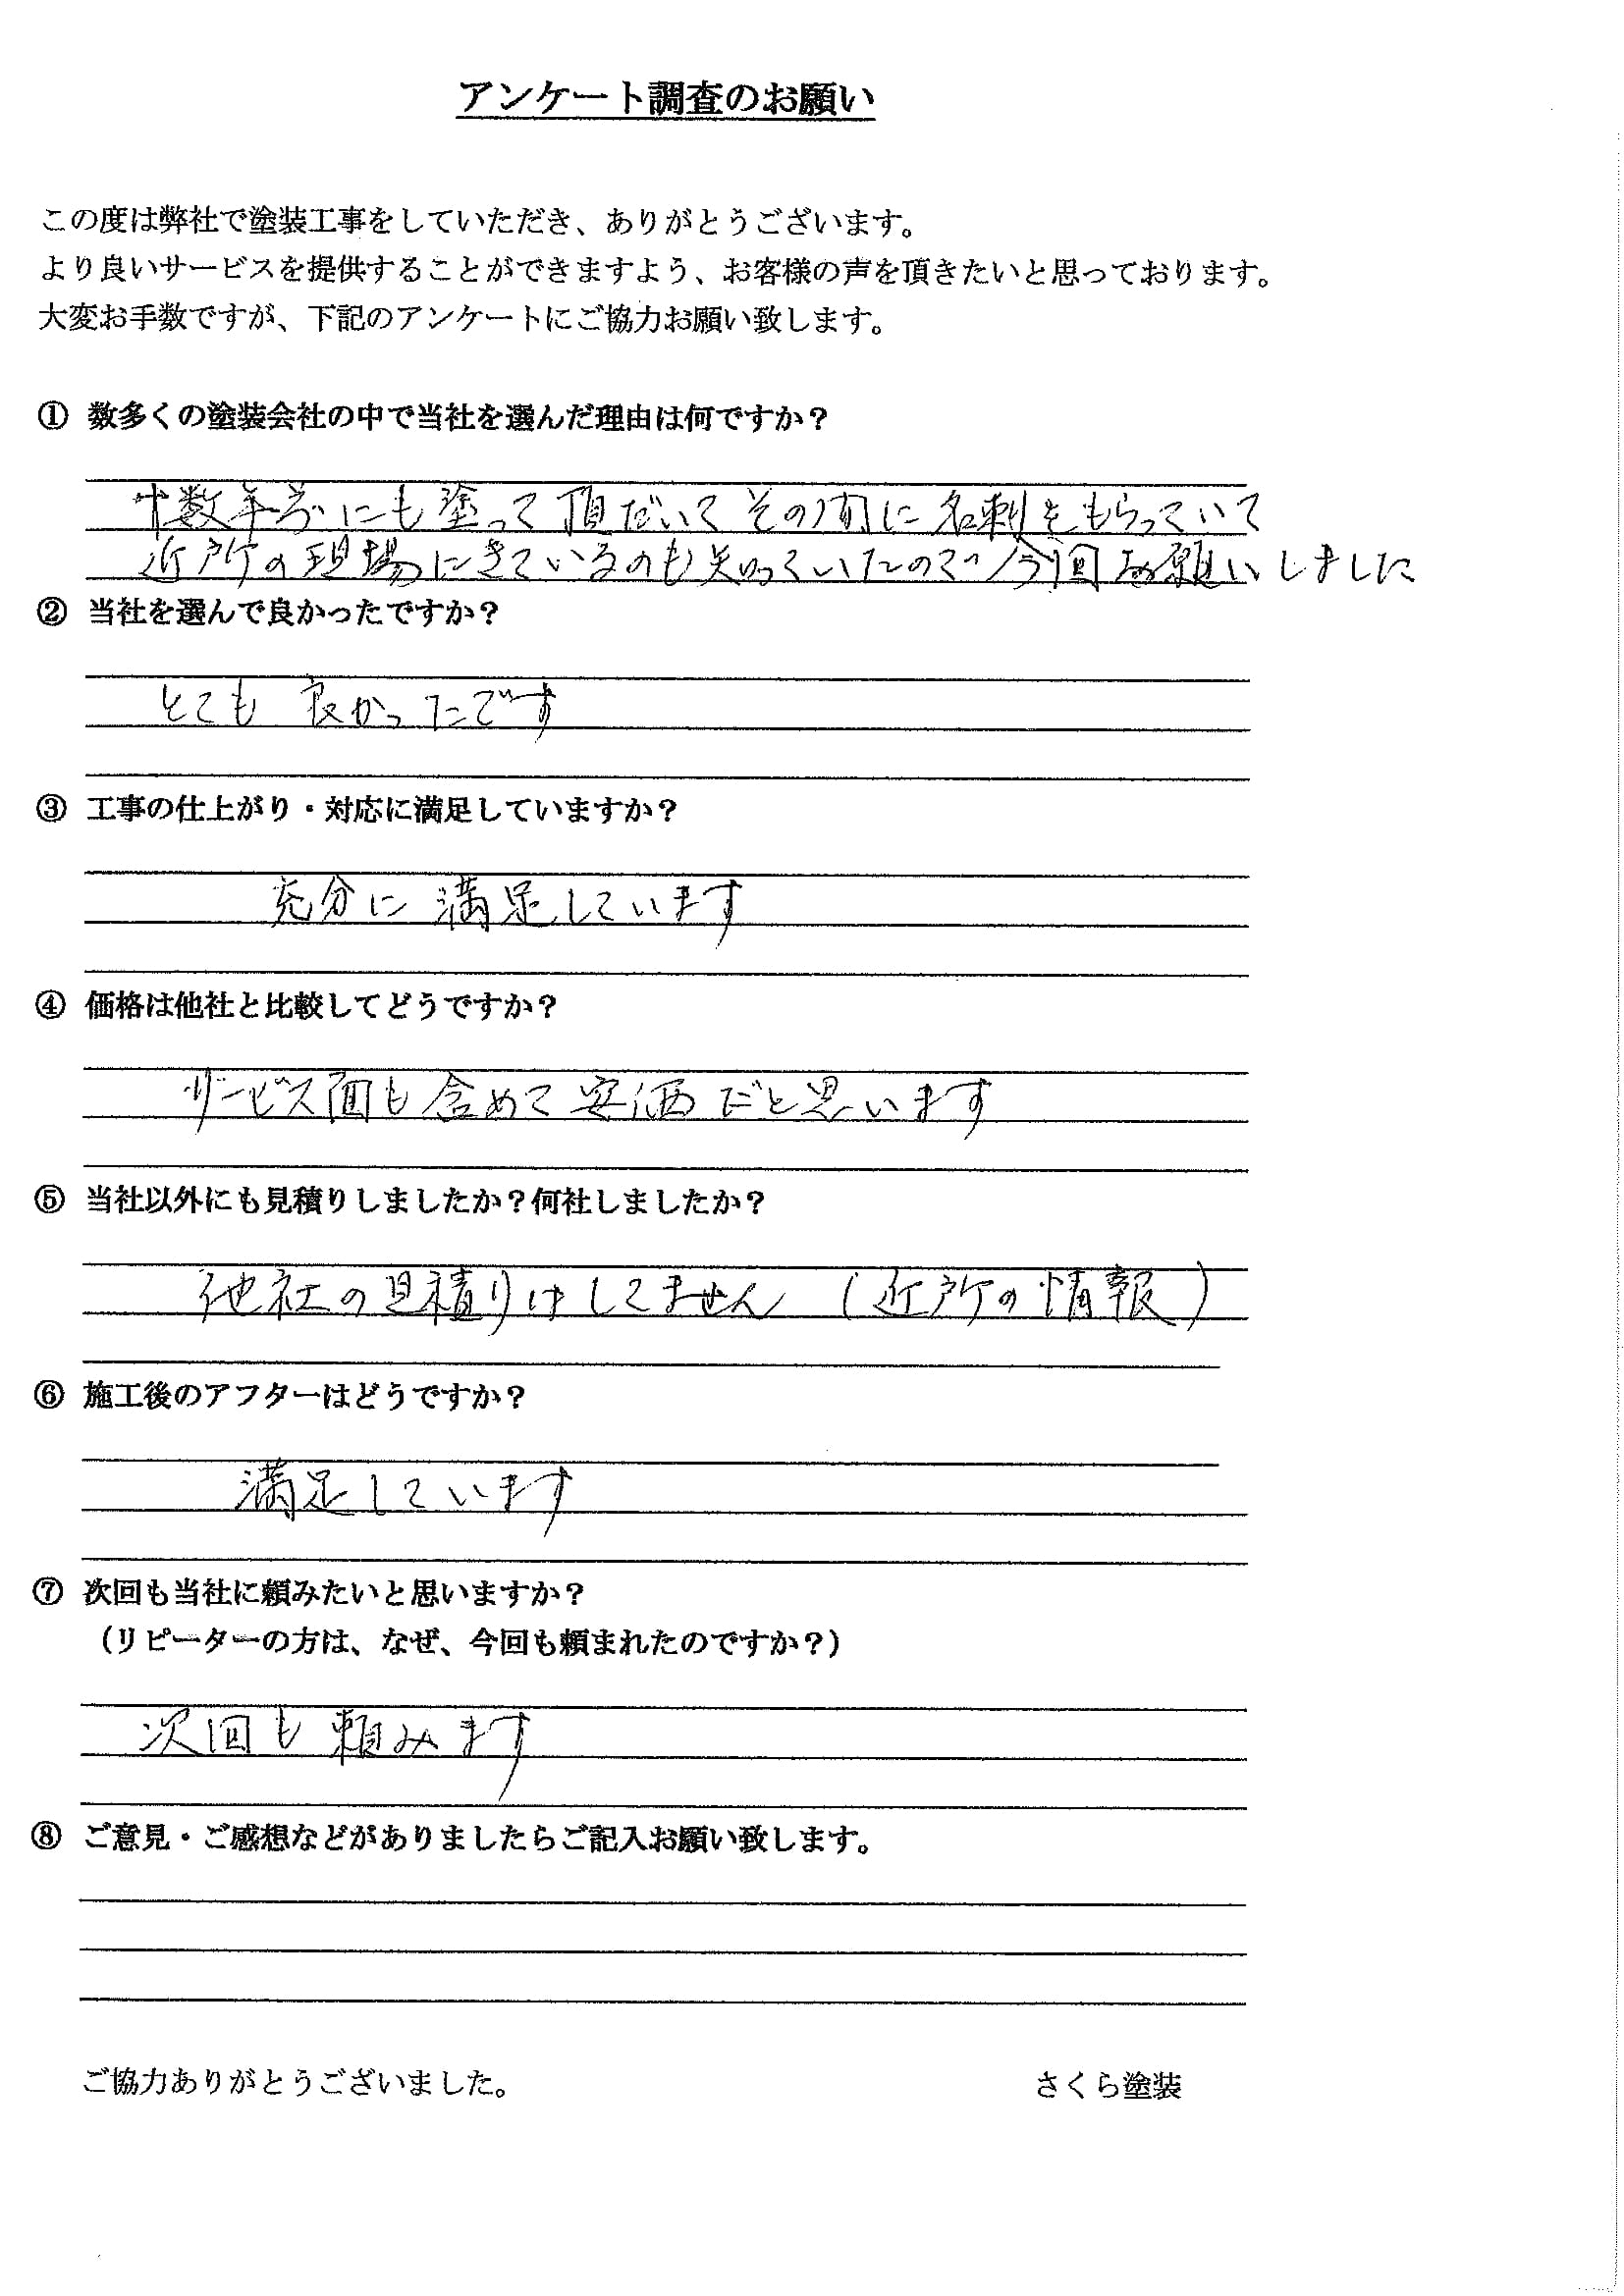 アンケート調査のお願い
この度は弊社で塗装工事をしていただき、ありがとうございます。
より良いサービスを提供することができますよう、お客様の声を頂きたいと思っております。
大変お手数ですが、下記のアンケートにご協力お願い致します。
① 数多くの塗装会社の中で当社を選んだ理由は何ですか？
十数年前にも塗って頂だいてその間に名刺をもらっていて
近所の現場にきているのも知っていたので今回お願いしました
② 当社を選んで良かったですか？
とても 良かったです
③ 工事の仕上がり・対応に満足していますか？
充分に 満足しています
④ 価格は他社と比較してどうですか？
サービス面も含めて安価だと思います
⑤ 当社以外にも見積りしましたか？何社しましたか？
他社の見積りはしてません （近所の情報）
⑥ 施工後のアフターはどうですか？
満足しています
⑦ 次回も当社に頼みたいと思いますか？
（リピーターの方は、なぜ、今回も頼まれたのですか？）
次回も頼みます
⑧ ご意見・ご感想などがありましたらご記入お願い致します。
ご協力ありがとうございました。 さくら塗装